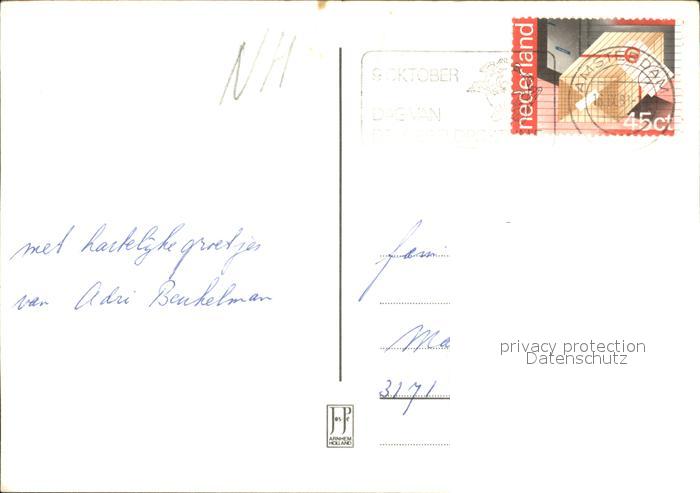 NH
9 OKTOBER
DAG VAN
nederland
45ct
6
AMSTERDAM
met hartelijke groetjes
van Adri Beukelman
fami
Ma
privacy protection
Datenschutz
3171
JosPé
ARNHEM
HOLLAND